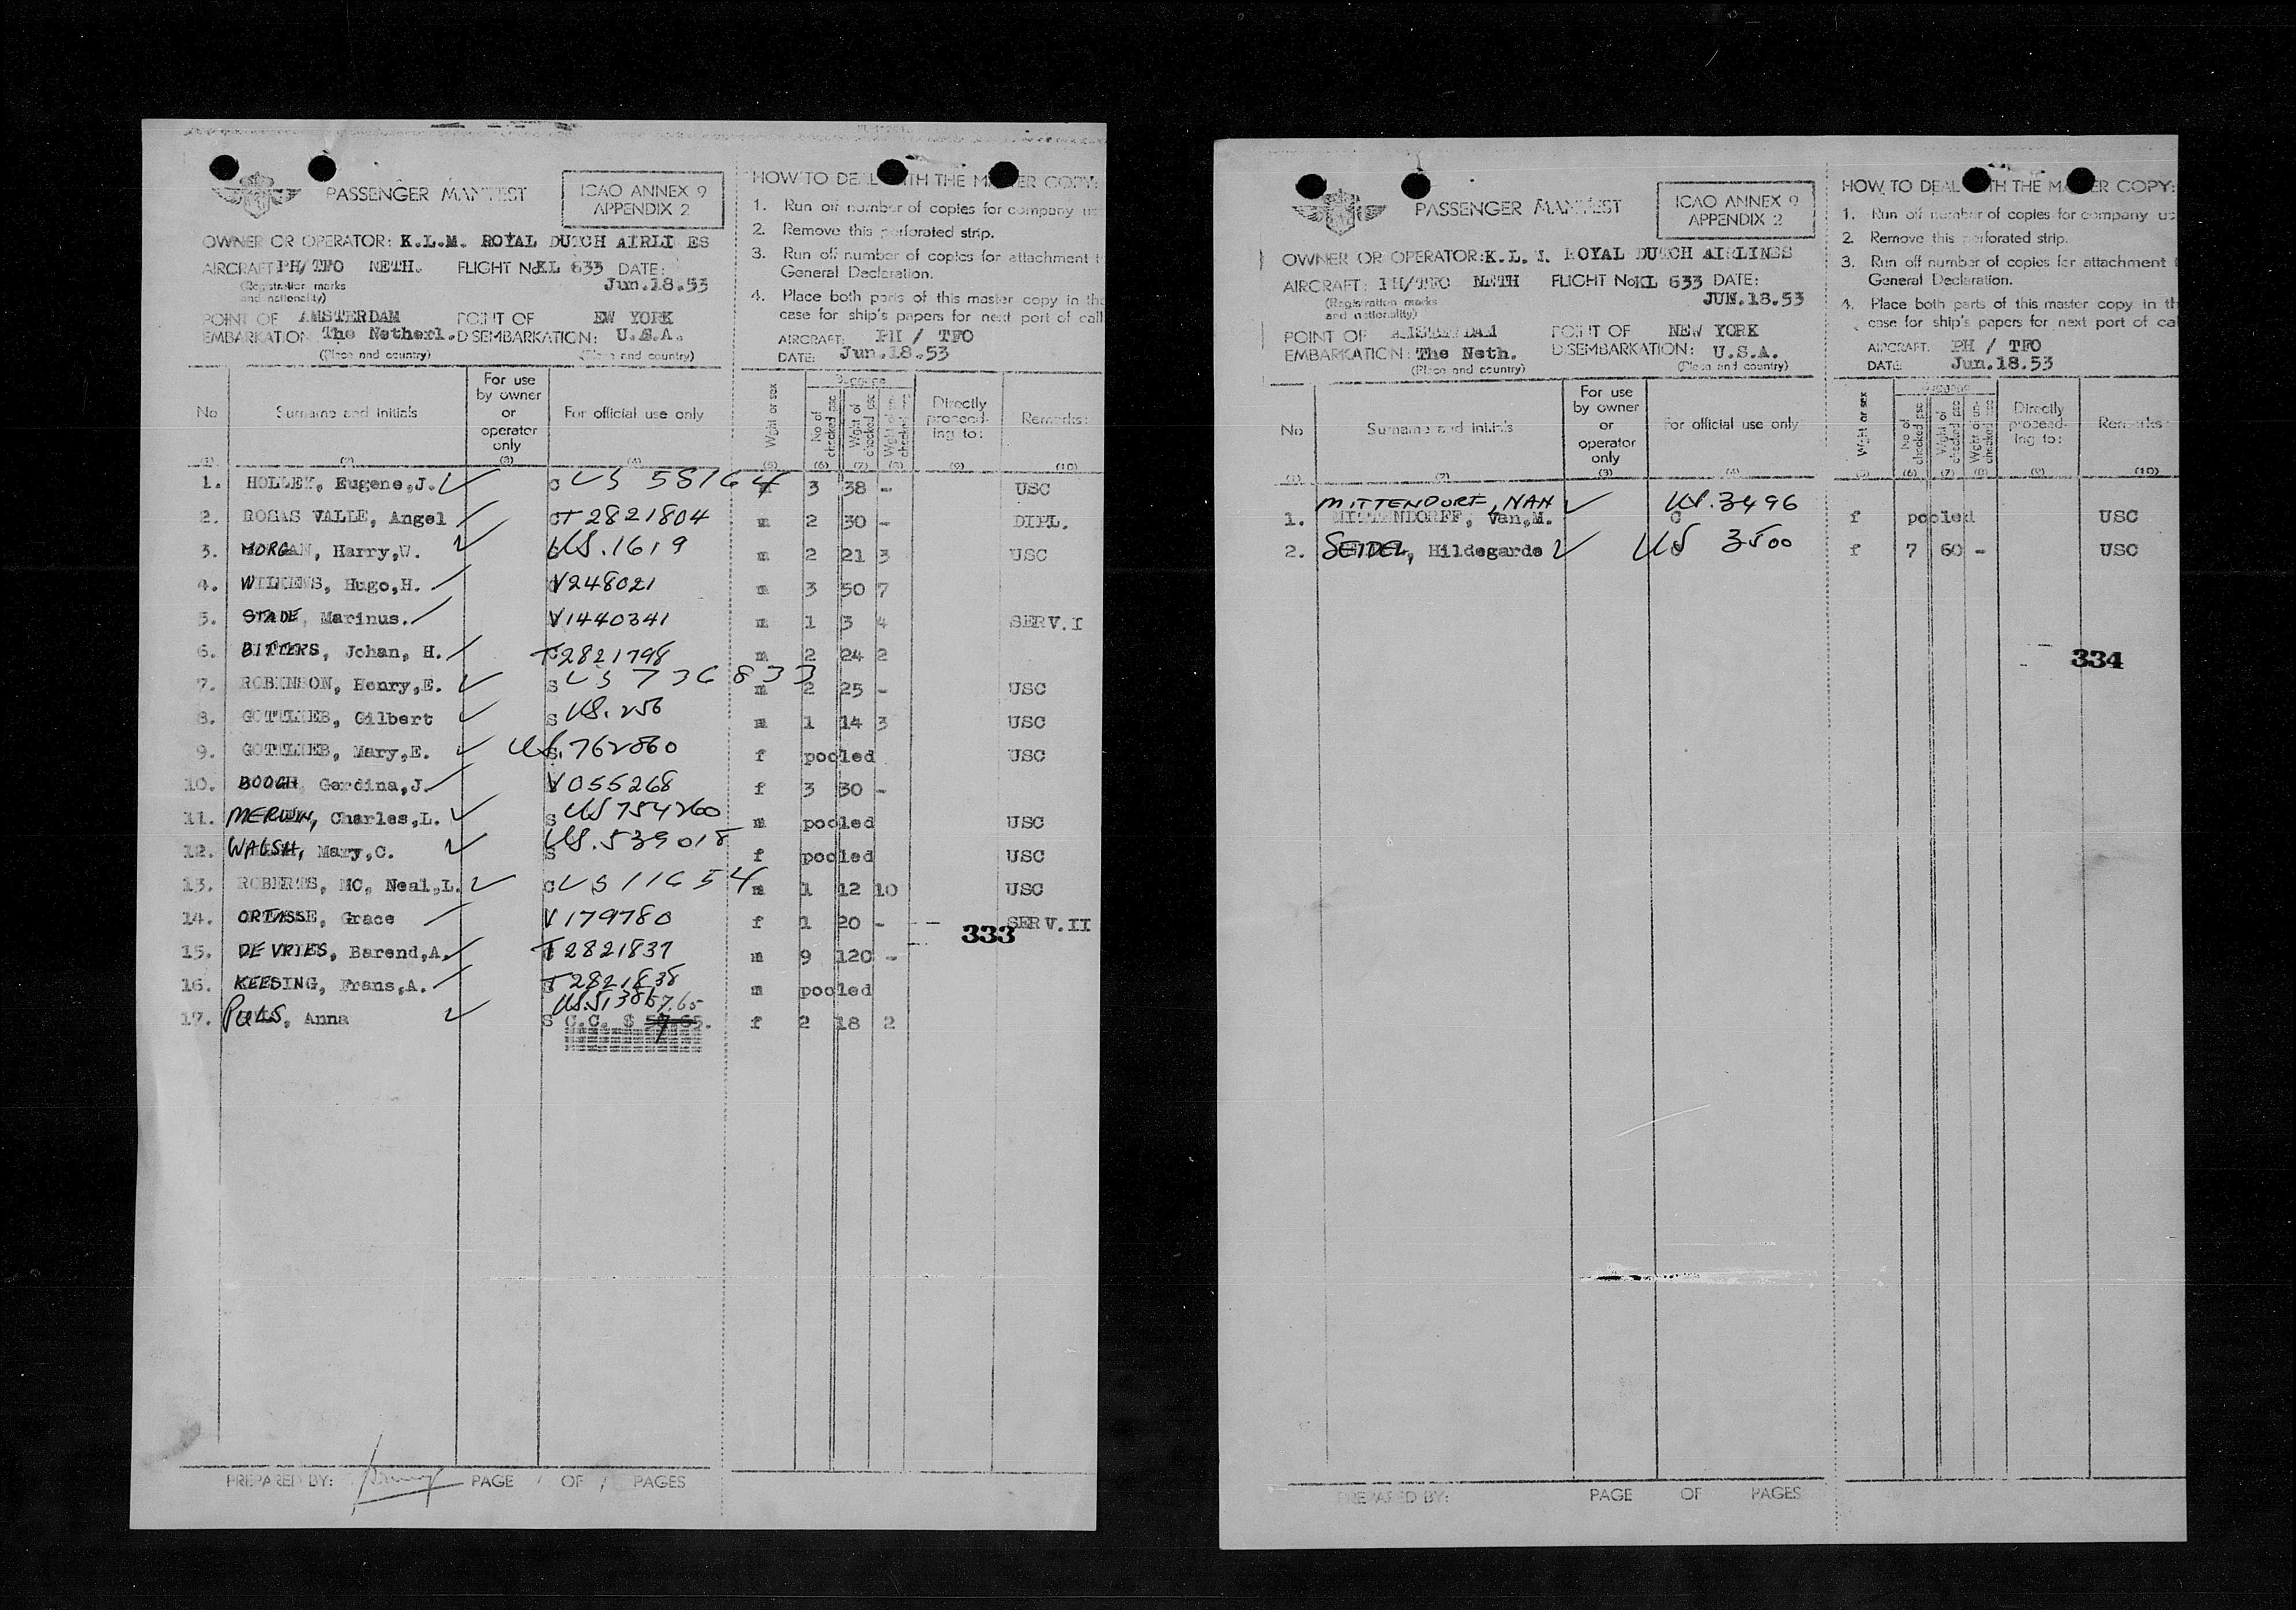 PASSENGER MANIFEST
ICAO ANNEX 9
APPENDIX 2
OWNER OR OPERATOR: K.L.M. ROYAL DUTCH AIRLI ES
AIRCRAFT: PH/TFO NETH. FLIGHT No KL 633 DATE:
(Registration marks and nationality) Jun.18.53
POINT OF AMSTERDAM POINT OF EW YORK
EMBARKATION: The Netherl. DISEMBARKATION: U.S.A.
(Place and country) (Place and country)
HOW TO DEAL WITH THE MASTER COPY:
1. Run off number of copies for company us
2. Remove this perforated strip.
3. Run off number of copies for attachment t
General Declaration.
4. Place both parts of this master copy in the
case for ship's papers for next port of call
AIRCRAFT: PH / TFO
DATE: Jun.18.53
No Surname and initials For use by owner or operator only For official use only Wght or sex Baggage No of checked psc Wght of checked psc Directly proceed-ing to: Remarks:
(1) (2) (3) (4) (5) (6) (7) (8) (9) (10)
1. HOLLEY, Eugene,J. C US 58164 3 38 - USC
2. ROSAS VALLE, Angel T2821804 m 2 30 - DIPL.
3. MORGAN, Harry,W. US.1619 m 2 21 3 USC
4. WILKENS, Hugo,H. V248021 m 3 50 7
5. STADE, Marinus. V1440341 m 1 3 4 SERV.I
6. BITTERS, Johan, H. T2821798 m 2 24 2
7. ROBINSON, Henry,E. S US 736833 m 2 25 - USC
8. GOTTLIEB, Gilbert S US.256 m 1 14 3 USC
9. GOTTLIEB, Mary,E. US.762860 f pooled USC
10. BOOGH, Gerdina,J. V055268 f 3 30 -
11. MERWIN, Charles,L. S US754260 m pooled USC
12. WALSH, Mary,C. S US.539018 f pooled USC
13. ROBERTS, MC, Neal,L. C US 11654 m 1 12 10 USC
14. ORTASSE, Grace V179780 f 1 20 - SERV.II
333
15. DE VRIES, Barend,A. T2821837 m 9 120 -
16. KEESING, Frans,A. T2821838 m pooled
17. PULS, Anna S C.C. $ 7.65 f 2 18 2
PREPARED BY: PAGE 1 OF 1 PAGES
PASSENGER MANIFEST
ICAO ANNEX 9
APPENDIX 2
OWNER OR OPERATOR: K.L.M. ROYAL DUTCH AIRLINES
AIRCRAFT: PH/TFO NETH FLIGHT No KL 633 DATE:
(Registration marks and nationality) JUN.18.53
POINT OF AMSTERDAM POINT OF NEW YORK
EMBARKATION: The Neth. DISEMBARKATION: U.S.A.
(Place and country) (Place and country)
HOW TO DEAL WITH THE MASTER COPY:
1. Run off number of copies for company us
2. Remove this perforated strip.
3. Run off number of copies for attachment
General Declaration.
4. Place both parts of this master copy in th
case for ship's papers for next port of cal
AIRCRAFT: PH / TFO
DATE: Jun.18.53
No Surname and initials For use by owner or operator only For official use only Wght or sex Baggage No of checked psc Wght of checked psc Directly proceed-ing to: Remarks:
(1) (2) (3) (4) (5) (6) (7) (8) (9) (10)
MITTENDORF, NAN US.3496
1. MITTENDORFF, Van,M. C f pooled USC
2. SEIDEL, Hildegarde US 3500 f 7 60 - USC
334
PREPARED BY: PAGE OF PAGES